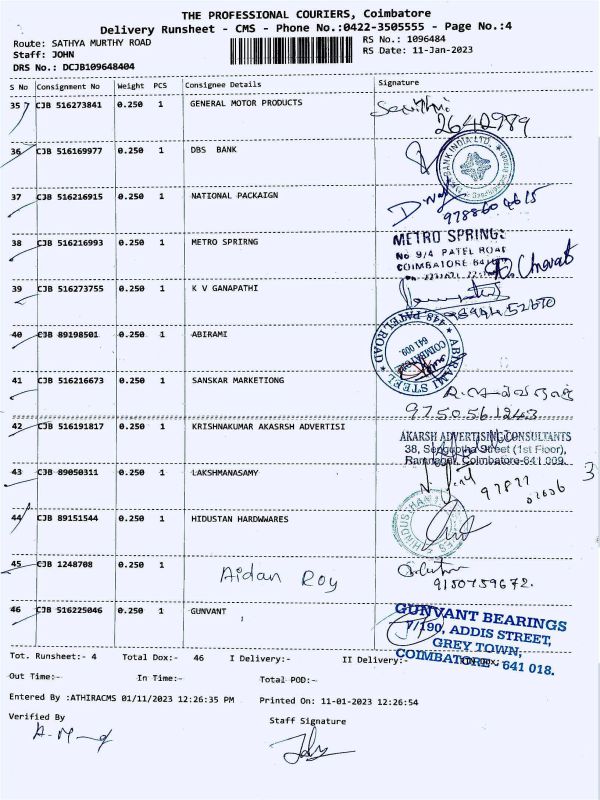 THE PROFESSIONAL COURIERS, Coimbatore
Delivery Runsheet - CMS - Phone No.:0422-3505555 - Page No.:4
Route: SATHYA MURTHY ROAD
RS No.: 1096484
Staff: JOHN
RS Date: 11-Jan-2023
DRS No.: DCJB109648404
S No Consignment No Weight PCS Consignee Details Signature
35 CJB 516273841 0.250 1 GENERAL MOTOR PRODUCTS
2640989
36 CJB 516169977 0.250 1 DBS BANK
BANK INDIA LTD.
37 CJB 516216915 0.250 1 NATIONAL PACKAIGN
9788604615
38 CJB 516216993 0.250 1 METRO SPRIRNG
METRO SPRING
No 9/4 PATEL ROAD
COIMBATORE 641
39 CJB 516273755 0.250 1 K V GANAPATHI
40 CJB 89198501 0.250 1 ABIRAMI
ABIRAMI STEEL
448 PATEL ROAD
COIMBATORE
641 009
41 CJB 516216673 0.250 1 SANSKAR MARKETIONG
9750561243
42 CJB 516191817 0.250 1 KRISHNAKUMAR AKASRSH ADVERTISI
AKARSH ADVERTISING CONSULTANTS
38, Senguptha Street (1st Floor),
Ramnagar, Coimbatore-641 009.
43 CJB 89050311 0.250 1 LAKSHMANASAMY
3
44 CJB 89151544 0.250 1 HIDUSTAN HARDWWARES
45 CJB 1248708 0.250 1 Aidan Roy
9150759672.
46 CJB 516225046 0.250 1 GUNVANT
GUNVANT BEARINGS
7/190, ADDIS STREET,
GREY TOWN,
COIMBATORE - 641 018.
Tot. Runsheet:- 4 Total Dox:- 46 I Delivery:- II Delivery:-
Out Time:- In Time:- Total POD:-
Entered By :ATHIRACMS 01/11/2023 12:26:35 PM Printed On: 11-01-2023 12:26:54
Verified By Staff Signature